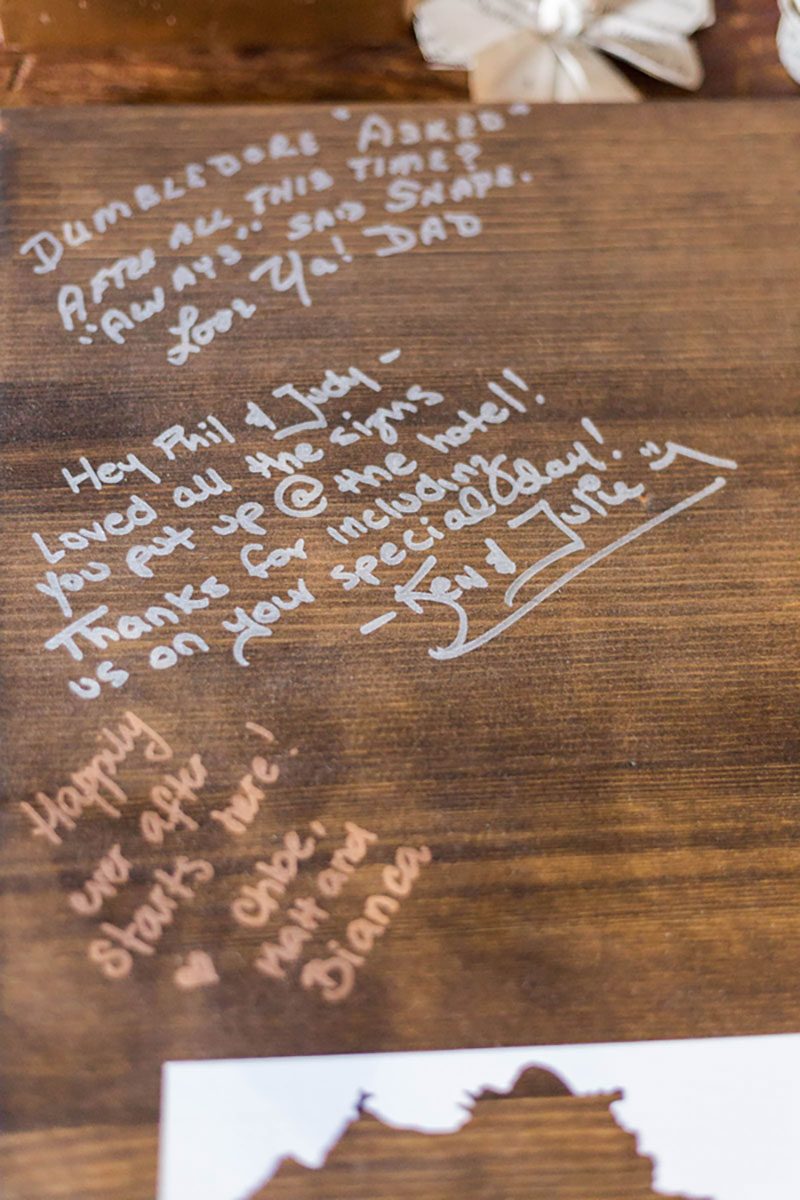 DUMBLEDORE "ASKED"
AFTER ALL THIS TIME?
"ALWAYS" SAID SNAPE.
Love Ya! DAD
Hey Phil & Judy -
Loved all the signs
you put up @ the hotel!
Thanks for including
us on your special day!
- Ken & Julie
Happily
ever after
starts here!
♥ Chloe,
Matt and
Bianca